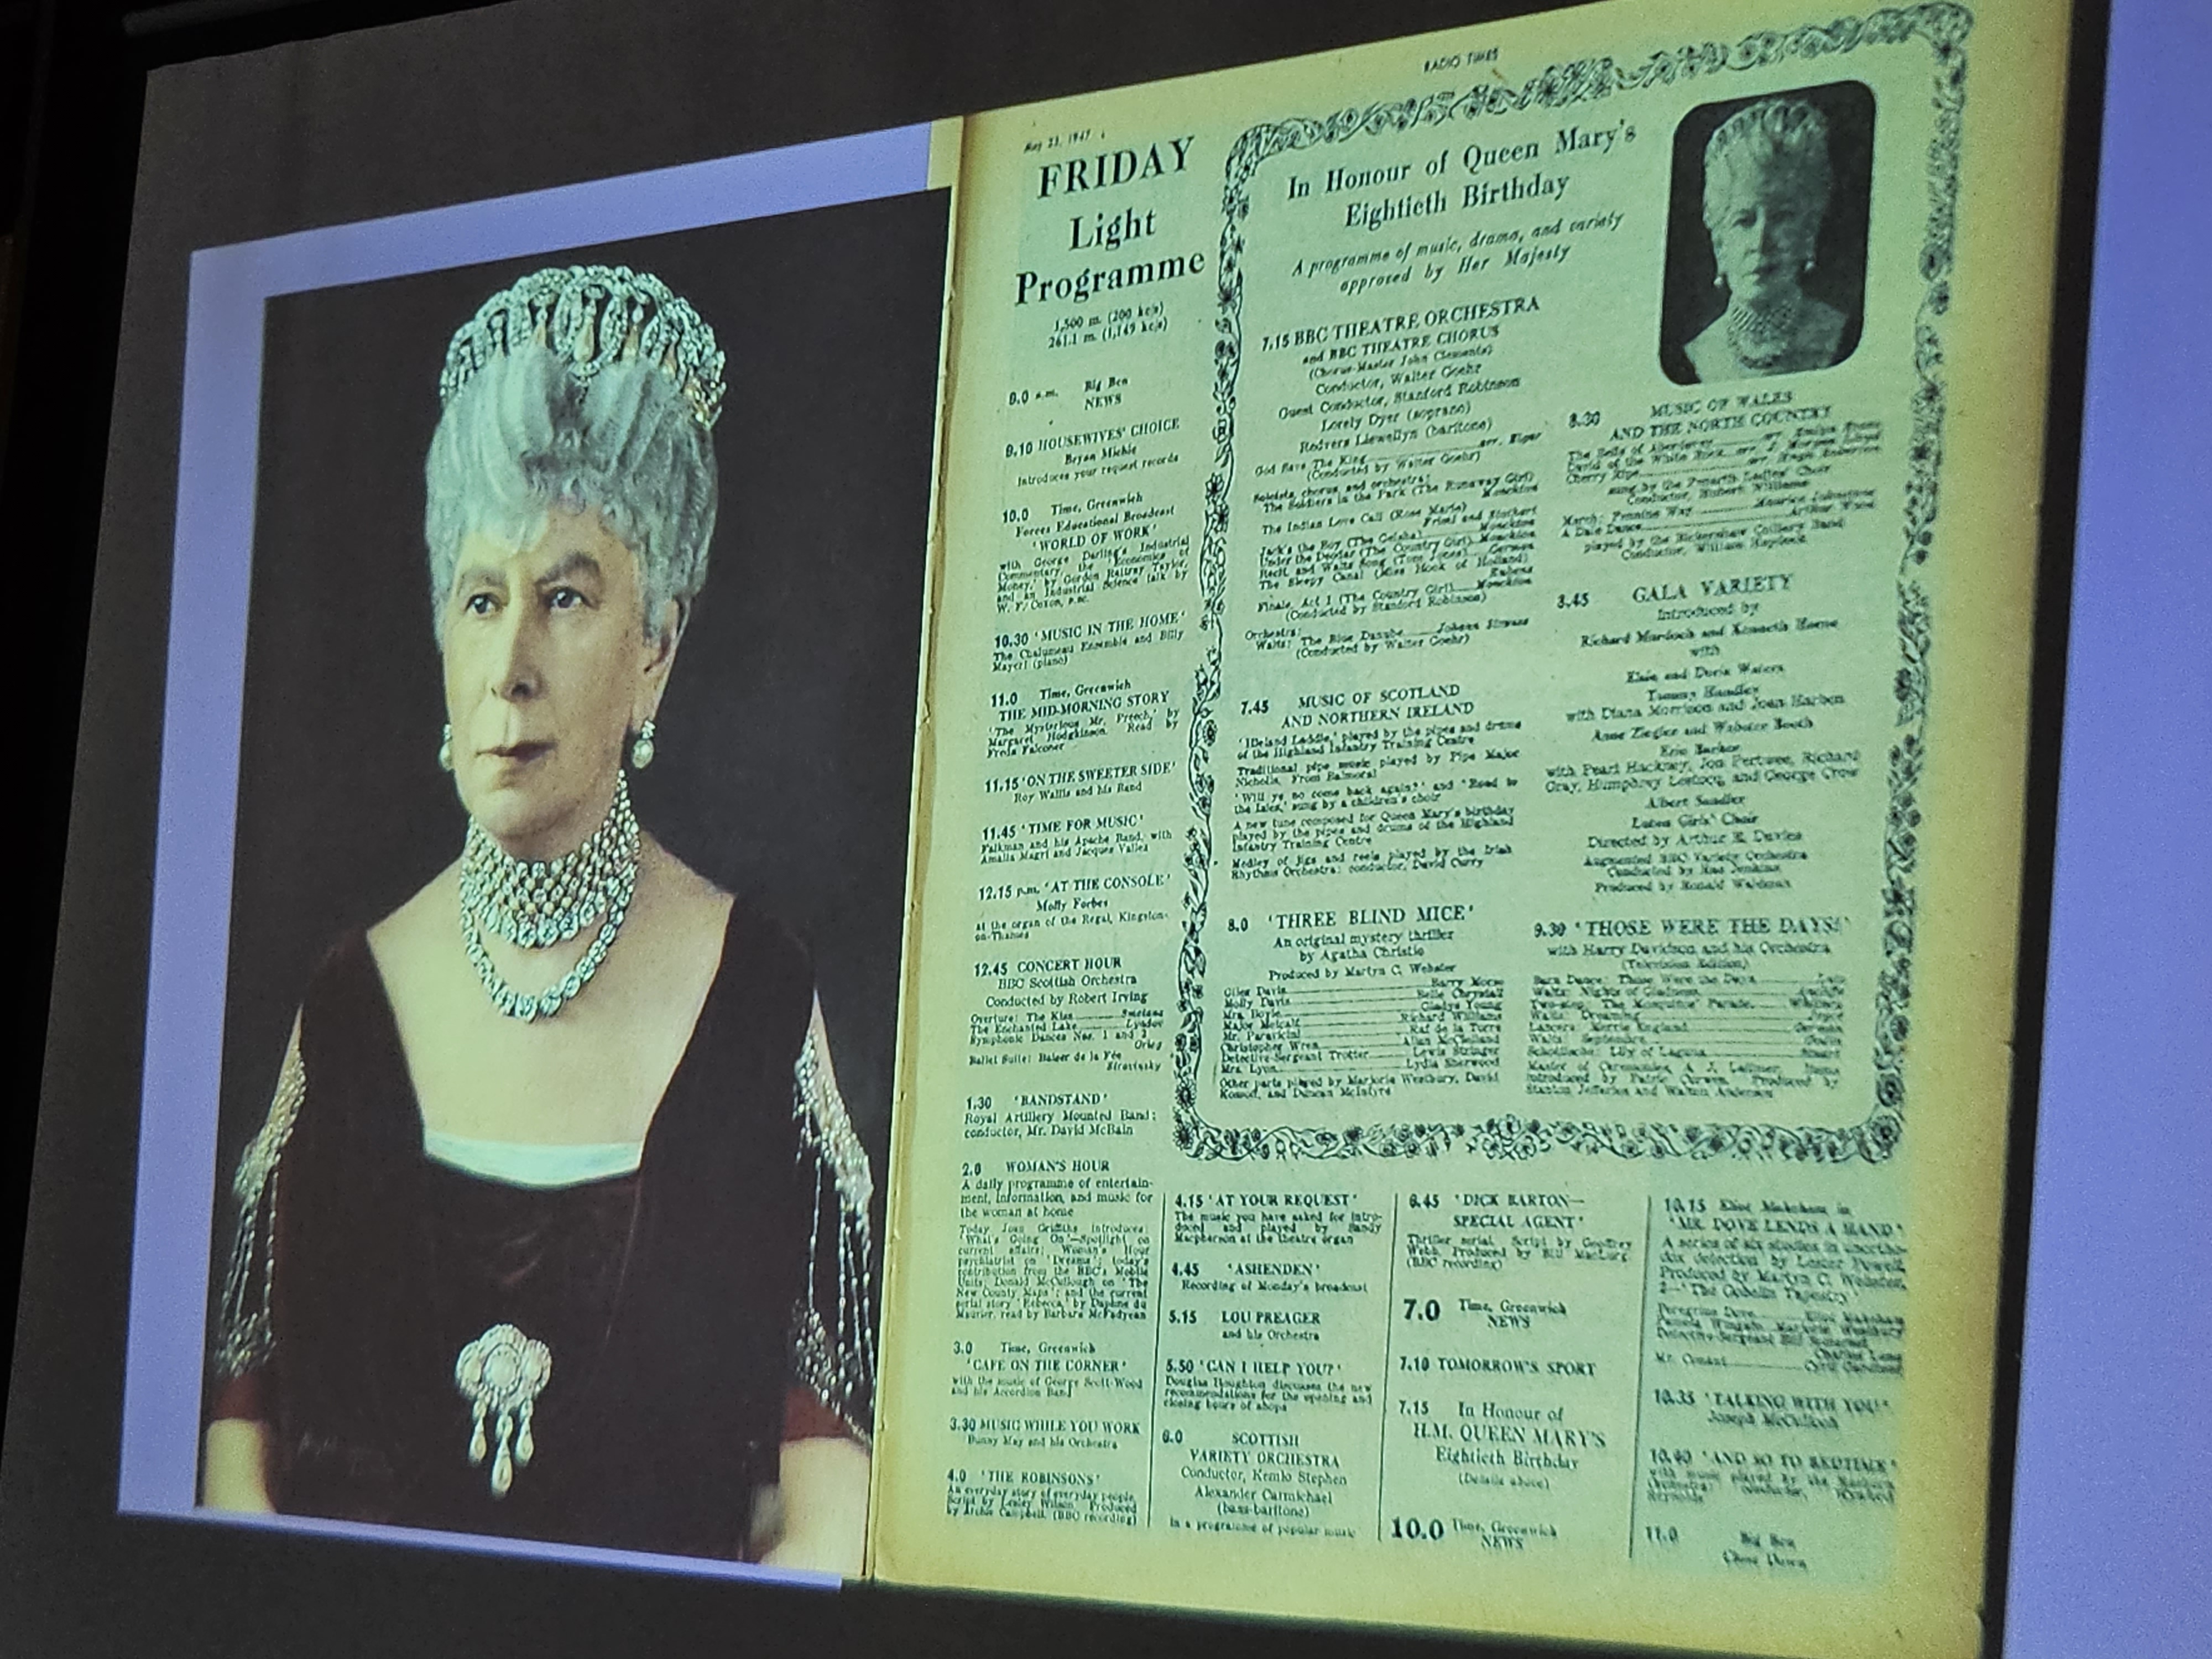 RADIO TIMES
May 23, 1947
FRIDAY
Light
Programme
1,500 m. (200 kc/s)
261.1 m. (1,149 kc/s)
9.0 a.m. Big Ben
NEWS
9.10 HOUSEWIVES' CHOICE
Bryan Michie
introduces your request records
10.0 Time, Greenwich
Forces Educational Broadcast
'WORLD OF WORK'
with George Darling's Industrial
Commentary, the 'Economics of
Money,' by Gordon Rattray Taylor,
and an Industrial Science talk by
W. F. Coxon,
10.30 'MUSIC IN THE HOME'
The Chalumeau Ensemble and Billy
Mayerl (piano)
11.0 Time, Greenwich
THE MID-MORNING STORY
'The Mysterious Mr. Preech,' by
Margaret Hodgkinson. Read by
Freda Falconer
11.15 'ON THE SWEETER SIDE'
Roy Wallis and his Band
11.45 'TIME FOR MUSIC'
Falkman and his Apache Band, with
Amalia Magri and Jacques Vallez
12.15 p.m. 'AT THE CONSOLE'
Molly Forbes
at the organ of the Regal, Kingston-
on-Thames
12.45 CONCERT HOUR
BBC Scottish Orchestra
Conducted by Robert Irving
Overture: The Kiss Smetana
The Enchanted Lake Lyadov
Symphonic Dances Nos. 1 and 2
Grieg
Ballet Suite: Baiser de la Fée
Stravinsky
1.30 'BANDSTAND'
Royal Artillery Mounted Band:
conductor, Mr. David McBain
2.0 WOMAN'S HOUR
A daily programme of entertain-
ment, information, and music for
the woman at home
Today Joan Griffiths introduces:
'What's Going On'—Spotlight on
current affairs; Woman's Hour
psychiatrist on 'Dreams'; today's
contribution from the BBC's Mobile
Units; Donald McCullough on 'The
New County Maps'; and the current
serial story 'Rebecca,' by Daphne du
Maurier, read by Barbara McFadyean
3.0 Time, Greenwich
'CAFE ON THE CORNER'
with the music of George Scott-Wood
and his Accordion Band
3.30 MUSIC WHILE YOU WORK
Bunny May and his Orchestra
4.0 'THE ROBINSONS'
An everyday story of everyday people.
Script by Lesley Wilson. Produced
by Archie Campbell. (BBC recording)
In Honour of Queen Mary's
Eightieth Birthday
A programme of music, drama, and variety
approved by Her Majesty
7.15 BBC THEATRE ORCHESTRA
and BBC THEATRE CHORUS
(Chorus-Master John Clements)
Conductor, Walter Goehr
Guest Conductor, Stanford Robinson
Lorely Dyer (soprano)
Redvers Llewellyn (baritone)
God Save The King arr. Elgar
(Conducted by Walter Goehr)
Soloists, chorus, and orchestra:
The Soldiers in the Park (The Runaway Girl)
Monckton
The Indian Love Call (Rose Marie)
Friml and Stothart
Jack's the Boy (The Geisha) Monckton
Under the Deodar (The Country Girl) Monckton
Recit. and Waltz Song (Tom Jones) German
The Sleepy Canal (Miss Hook of Holland)
Rubens
Finale, Act 1 (The Country Girl) Monckton
(Conducted by Stanford Robinson)
Orchestra:
Waltz: The Blue Danube Johann Strauss
(Conducted by Walter Goehr)
7.45 MUSIC OF SCOTLAND
AND NORTHERN IRELAND
'Hieland Laddie,' played by the pipes and drums
of the Highland Infantry Training Centre
Traditional pipe music played by Pipe Major
Nicholls. From Balmoral
'Will ye no come back again?' and 'Road to
the Isles,' sung by a children's choir
A new tune composed for Queen Mary's birthday
played by the pipes and drums of the Highland
Infantry Training Centre
Medley of jigs and reels played by the Irish
Rhythms Orchestra: conductor, David Curry
8.0 'THREE BLIND MICE'
An original mystery thriller
by Agatha Christie
Produced by Martyn C. Webster
Giles Davis Barry Morse
Molly Davis Belle Chrystall
Mrs. Boyle Gladys Young
Major Metcalf Richard Williams
Mr. Paravicini Raf de la Torre
Christopher Wren Allan McClelland
Detective-Sergeant Trotter Lewis Stringer
Mrs. Lyon Lydia Sherwood
Other parts played by Marjorie Westbury, David
Kossoff, and Duncan McIntyre
8.30 MUSIC OF WALES
AND THE NORTH COUNTRY
The Bells of Aberdovey arr.
David of the White Rock arr.
Cherry Ripe arr.
sung by the Penarth Ladies' Choir
Conductor, Hubert Williams
March: Pennine Way Maurice Johnstone
A Dale Dance Arthur Wood
played by the Bickershaw Colliery Band
Conductor, William Haydock
8.45 GALA VARIETY
Introduced by
Richard Murdoch and Kenneth Horne
with
Elsie and Doris Waters
Tommy Handley
with Diana Morrison and Joan Harben
Anne Ziegler and Webster Booth
Eric Barker
with Pearl Hackney, Jon Pertwee, Richard
Gray, Humphrey Lestocq, and George Crow
Albert Sandler
Luton Girls' Choir
Directed by Arthur E. Davies
Augmented BBC Variety Orchestra
Conducted by Rae Jenkins
Produced by Ronald Waldman
9.30 'THOSE WERE THE DAYS!'
with Harry Davidson and his Orchestra
(Television Edition)
Barn Dance: Those Were the Days
Waltz: Nights of Gladness
Two-step: The Mosquitos' Parade
Waltz: Dreaming Joyce
Lancers: Merrie England German
Waltz: Septembre Godin
Schottische: Lily of Laguna Stuart
Master of Ceremonies, A. J. Latimer. Items
introduced by Patric Curwen. Produced by
Stanton Jefferies and Walton Anderson
4.15 'AT YOUR REQUEST'
The music you have asked for intro-
duced and played by Sandy
Macpherson at the theatre organ
4.45 'ASHENDEN'
Recording of Monday's broadcast
5.15 LOU PREAGER
and his Orchestra
5.50 'CAN I HELP YOU?'
Douglas Houghton discusses the new
recommendations for the opening and
closing hours of shops
6.0 SCOTTISH
VARIETY ORCHESTRA
Conductor, Kemlo Stephen
Alexander Carmichael
(bass-baritone)
In a programme of popular music
6.45 'DICK BARTON—
SPECIAL AGENT'
Thriller serial. Script by Geoffrey
Webb. Produced by Bill MacLurg
(BBC recording)
7.0 Time, Greenwich
NEWS
7.10 TOMORROW'S SPORT
7.15 In Honour of
H.M. QUEEN MARY'S
Eightieth Birthday
(Details above)
10.0 Time, Greenwich
NEWS
10.15 Elliot Makeham in
'MR. DOVE LENDS A HAND'
A series of six studies in unortho-
dox detection by Lester Powell
Produced by Martyn C. Webster
2—'The Gobelin Tapestry'
Peregrine Dove Elliot Makeham
Pamela Wingate Marjorie Westbury
Detective-Sergeant Bill
Charles Lamb
Mr. Conant
10.35 'TALKING WITH YOU'
Joseph McCulloch
10.40 'AND SO TO BEDTIME'
with music played by the
Orchestra: conductor,
Reynolds
11.0 Big Ben
Close Down